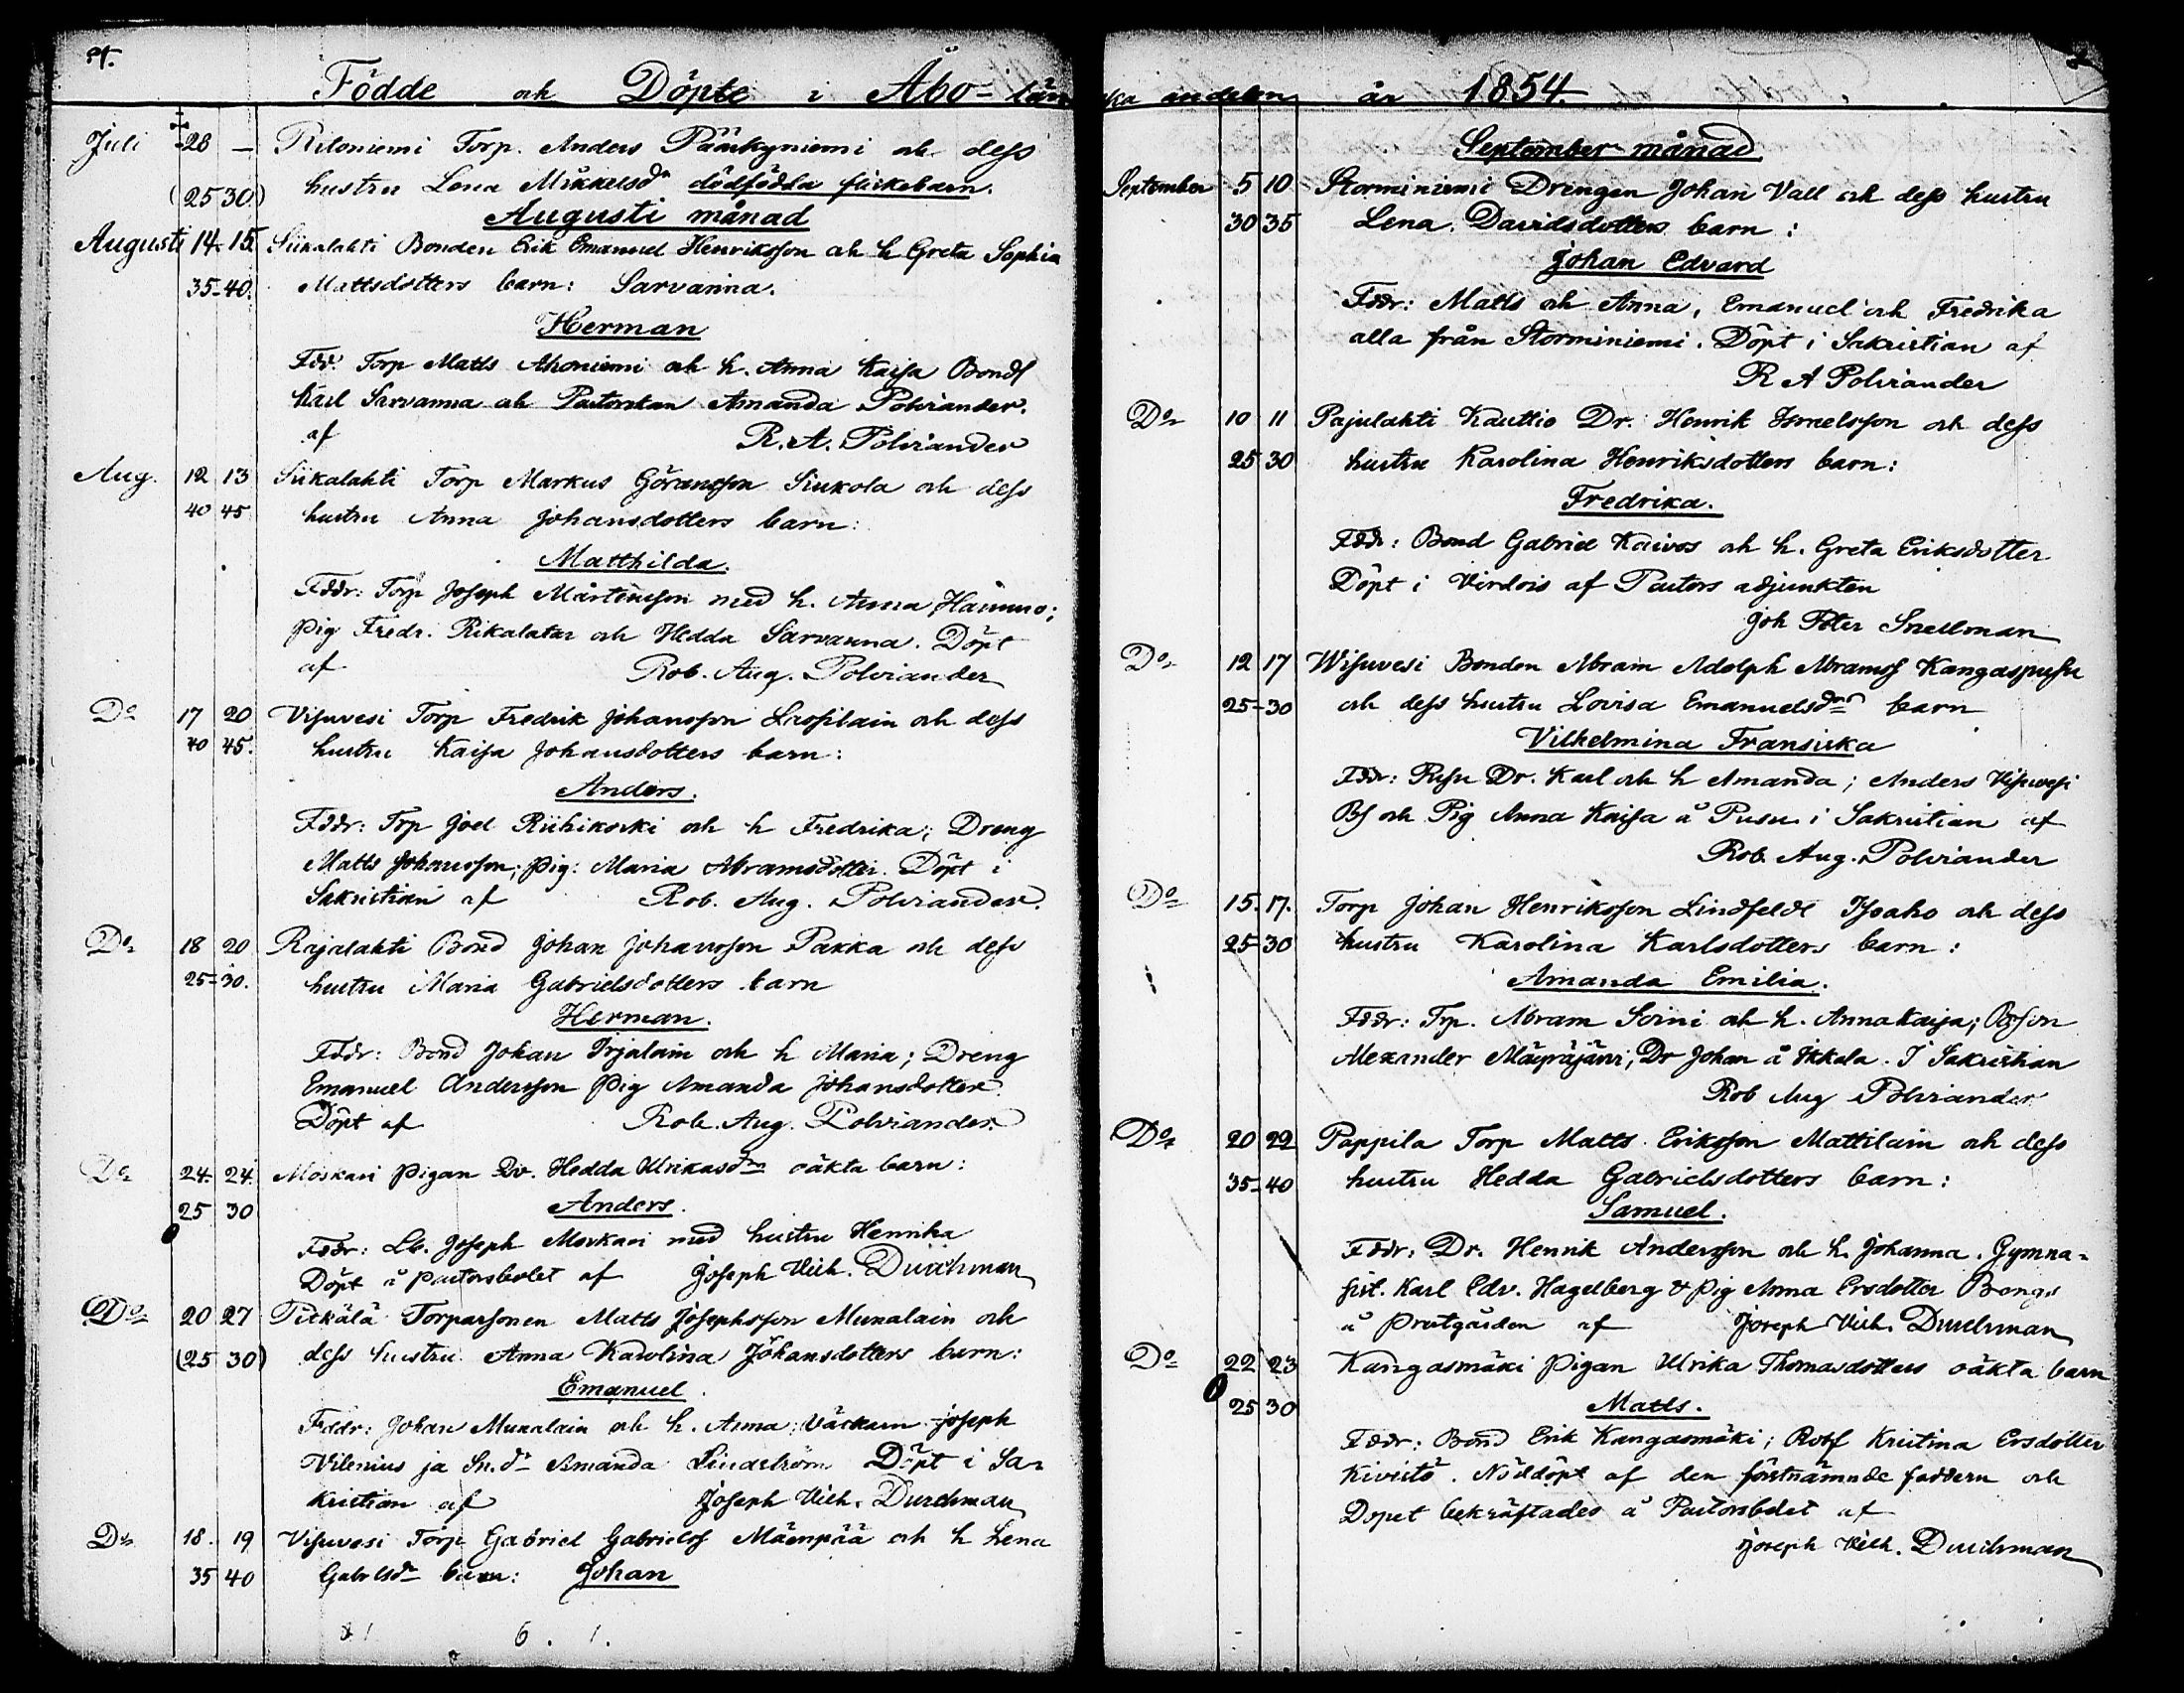 Födde och Döpte i Åbo-länska andelen år 1854.
Juli 28 — Riloniemi Torp. Anders Päärkyniemi och dess
(25 30) hustru Lena Mikkelsdr dödfödda flickebarn.
Augusti månad
Augusti 14. 15. Siikalahti Bonden Erik Emanuel Henriksson och h Greta Sophia
35-40. Mattsdotters barn: Sarvanna.
Herman
Fdr: Torp Matts Ahoniemi och h. Anna Kaisa Bondf
Karl Sarvanna och Pastorskan Amanda Polviander.
af R. A. Polviander
Aug. 12 13 Siikalahti Torp Markus Göransson Siukola och dess
40 45 hustru Anna Johansdotters barn:
Matthilda.
Fddr: Torp Joseph Mårtensson med h. Anna Hannus;
Pig Fredr. Rikalatar och Hedda Sarvanna. Döpt
af Rob. Aug. Polviander
Do 17 20 Visuvesi Torp Fredrik Johansson Liossilain och dess
40 45. hustru Kaisa Johansdotters barn:
Anders.
Fddr: Trp Joel Riihikoski och h Fredrika; Dreng
Matts Johansson; Pig: Maria Abramsdotter. Döpt i
Sakristian af Rob. Aug. Polviander.
Do 18 20 Rajalahti Bond Johan Johansson Pakka och dess
25-30. hustru Maria Gabrielsdotters barn
Herman.
Fddr: Bond Johan Irjalain och h Maria; Dreng
Emanuel Andersson Pig Amanda Johansdotter.
Döpt af Rob. Aug. Polviander.
Do 24. 24. Moskari Pigan Qv. Hedda Ulrikasdrs oäkta barn:
25 30 Anders.
Fddr: Lb. Joseph Moskari med hustru Henrika
Döpt å Pastorsbolet af Joseph Vilh. Durchman
Do 20 27 Pitkälä Torparsonen Matts Josephsson Munalain och
(25 30) dess hustru Anna Karolina Johansdotters barn:
Emanuel.
Fddr: Johan Munalain och h. Anna; Väckarn Joseph
Vilenius ja Sn.dr Amanda Lindström. Döpt i Sa-
kristian af Joseph Vilh. Durchman
Do 18. 19 Visuvesi Torp Gabriel Gabrielsf Mäenpää och h Lena
35 40 Gabrlsdr barn: Johan
6. 1.
September månad
September 5 10 Storminiemi Drengen Johan Vall och dess hustru
30 35 Lena Davidsdotters barn:
Johan Edvard
Fddr: Matts och Anna, Emanuel och Fredrika
alla från Storminiemi. Döpt i Sakristian af
R A Polviander
Do 10 11 Pajulahti Kauttio Dr. Henrik Israelsson och dess
25 30 hustru Karolina Henriksdotters barn:
Fredrika.
Fddr: Bond Gabriel Kaivos och h. Greta Eriksdotter
Döpt i Virdois af Pastors adjunkten
Joh Peter Snellman
Do 12 17 Wisuvesi Bonden Abram Adolph Abramsf Kangaspusu
25-30 och dess hustru Lovisa Emanuelsdrs barn
Vilhelmina Fransiska
Fddr: Pusu Dr. Karl och h Amanda; Anders Visuvesi
Bs och Pig Anna Kaisa å Pusu i Sakristian af
Rob. Aug. Polviander
Do 15. 17. Torp Johan Henriksson Lindfeldt Isoaho och dess
25-30 hustru Karolina Karlsdotters barn:
Amanda Emilia.
Fddr: Trp. Abram Soini och h. Anna Kaisa; Bsson
Alexander Mäyräjärvi, Dr Johan å Ikkala. I Sakristian
Rob Aug Polviander
Do 20 22 Pappila Torp Matts Eriksson Mattilain och dess
35-40 hustru Hedda Gabrielsdotters barn:
Samuel.
Fddr: Dr. Henrik Andersson och h. Johanna. Gymna-
sist. Karl Edv. Hagelberg & Pig Anna Ersdotter Bongs
å Prestgården af Joseph Vilh. Durchman
Do 22 23 Kangasmäki Pigan Ulrika Thomasdotters oäkta barn
25 30 Matts.
Fddr: Bond Erik Kangasmäki; Kristina Ersdotter
Kivistö. Nöddöpt af den förstnämnde faddern och
Dopet bekräftades å Pastorsbolet af
Joseph Vilh. Durchman